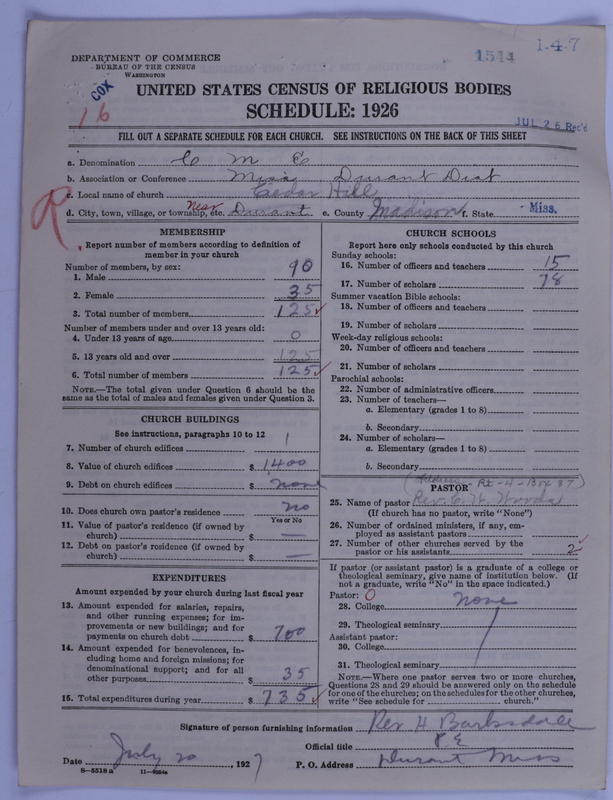 DEPARTMENT OF COMMERCE
BUREAU OF THE CENSUS
WASHINGTON
COX
16
1544
1-4-7
UNITED STATES CENSUS OF RELIGIOUS BODIES
SCHEDULE: 1926
JUL 26 Rec'd
FILL OUT A SEPARATE SCHEDULE FOR EACH CHURCH. SEE INSTRUCTIONS ON THE BACK OF THIS SHEET
a. Denomination C M E
b. Association or Conference Miss Durant Dist
c. Local name of church Cedar Hill
R
d. City, town, village, or township, etc. Near Durant e. County Madison f. State Miss.
MEMBERSHIP
Report number of members according to definition of
member in your church
Number of members, by sex:
1. Male 90
2. Female 35
3. Total number of members 125
Number of members under and over 13 years old:
4. Under 13 years of age 0
5. 13 years old and over 125
6. Total number of members 125
NOTE.—The total given under Question 6 should be the
same as the total of males and females given under Question 3.
CHURCH BUILDINGS
See instructions, paragraphs 10 to 12
7. Number of church edifices 1
8. Value of church edifices $ 1400
9. Debt on church edifices $ none
10. Does church own pastor's residence? no
Yes or No
11. Value of pastor's residence (if owned by
church) $ —
12. Debt on pastor's residence (if owned by
church) $ —
EXPENDITURES
Amount expended by your church during last fiscal year
13. Amount expended for salaries, repairs,
and other running expenses; for im-
provements or new buildings; and for
payments on church debt $ 700
14. Amount expended for benevolences, in-
cluding home and foreign missions; for
denominational support; and for all
other purposes $ 35
15. Total expenditures during year $ 735
CHURCH SCHOOLS
Report here only schools conducted by this church
Sunday schools:
16. Number of officers and teachers 15
17. Number of scholars 78
Summer vacation Bible schools:
18. Number of officers and teachers
19. Number of scholars
Week-day religious schools:
20. Number of officers and teachers
21. Number of scholars
Parochial schools:
22. Number of administrative officers
23. Number of teachers—
a. Elementary (grades 1 to 8)
b. Secondary
24. Number of scholars—
a. Elementary (grades 1 to 8)
b. Secondary
(Address Rt-4-Box 87
PASTOR
25. Name of pastor Rev. C. W.
(If church has no pastor, write "None")
26. Number of ordained ministers, if any, em-
ployed as assistant pastors
27. Number of other churches served by the
pastor or his assistants 2
If pastor (or assistant pastor) is a graduate of a college or
theological seminary, give name of institution below. (If
not a graduate, write "No" in the space indicated.)
Pastor: 0
28. College none
29. Theological seminary
Assistant pastor:
30. College
31. Theological seminary
NOTE.—Where one pastor serves two or more churches,
Questions 28 and 29 should be answered only on the schedule
for one of the churches; on the schedules for the other churches,
write "See schedule for church."
Signature of person furnishing information Rev H Barksdale
Official title P E
Date July 20, 1927 P. O. Address Durant Miss
8—5518 a